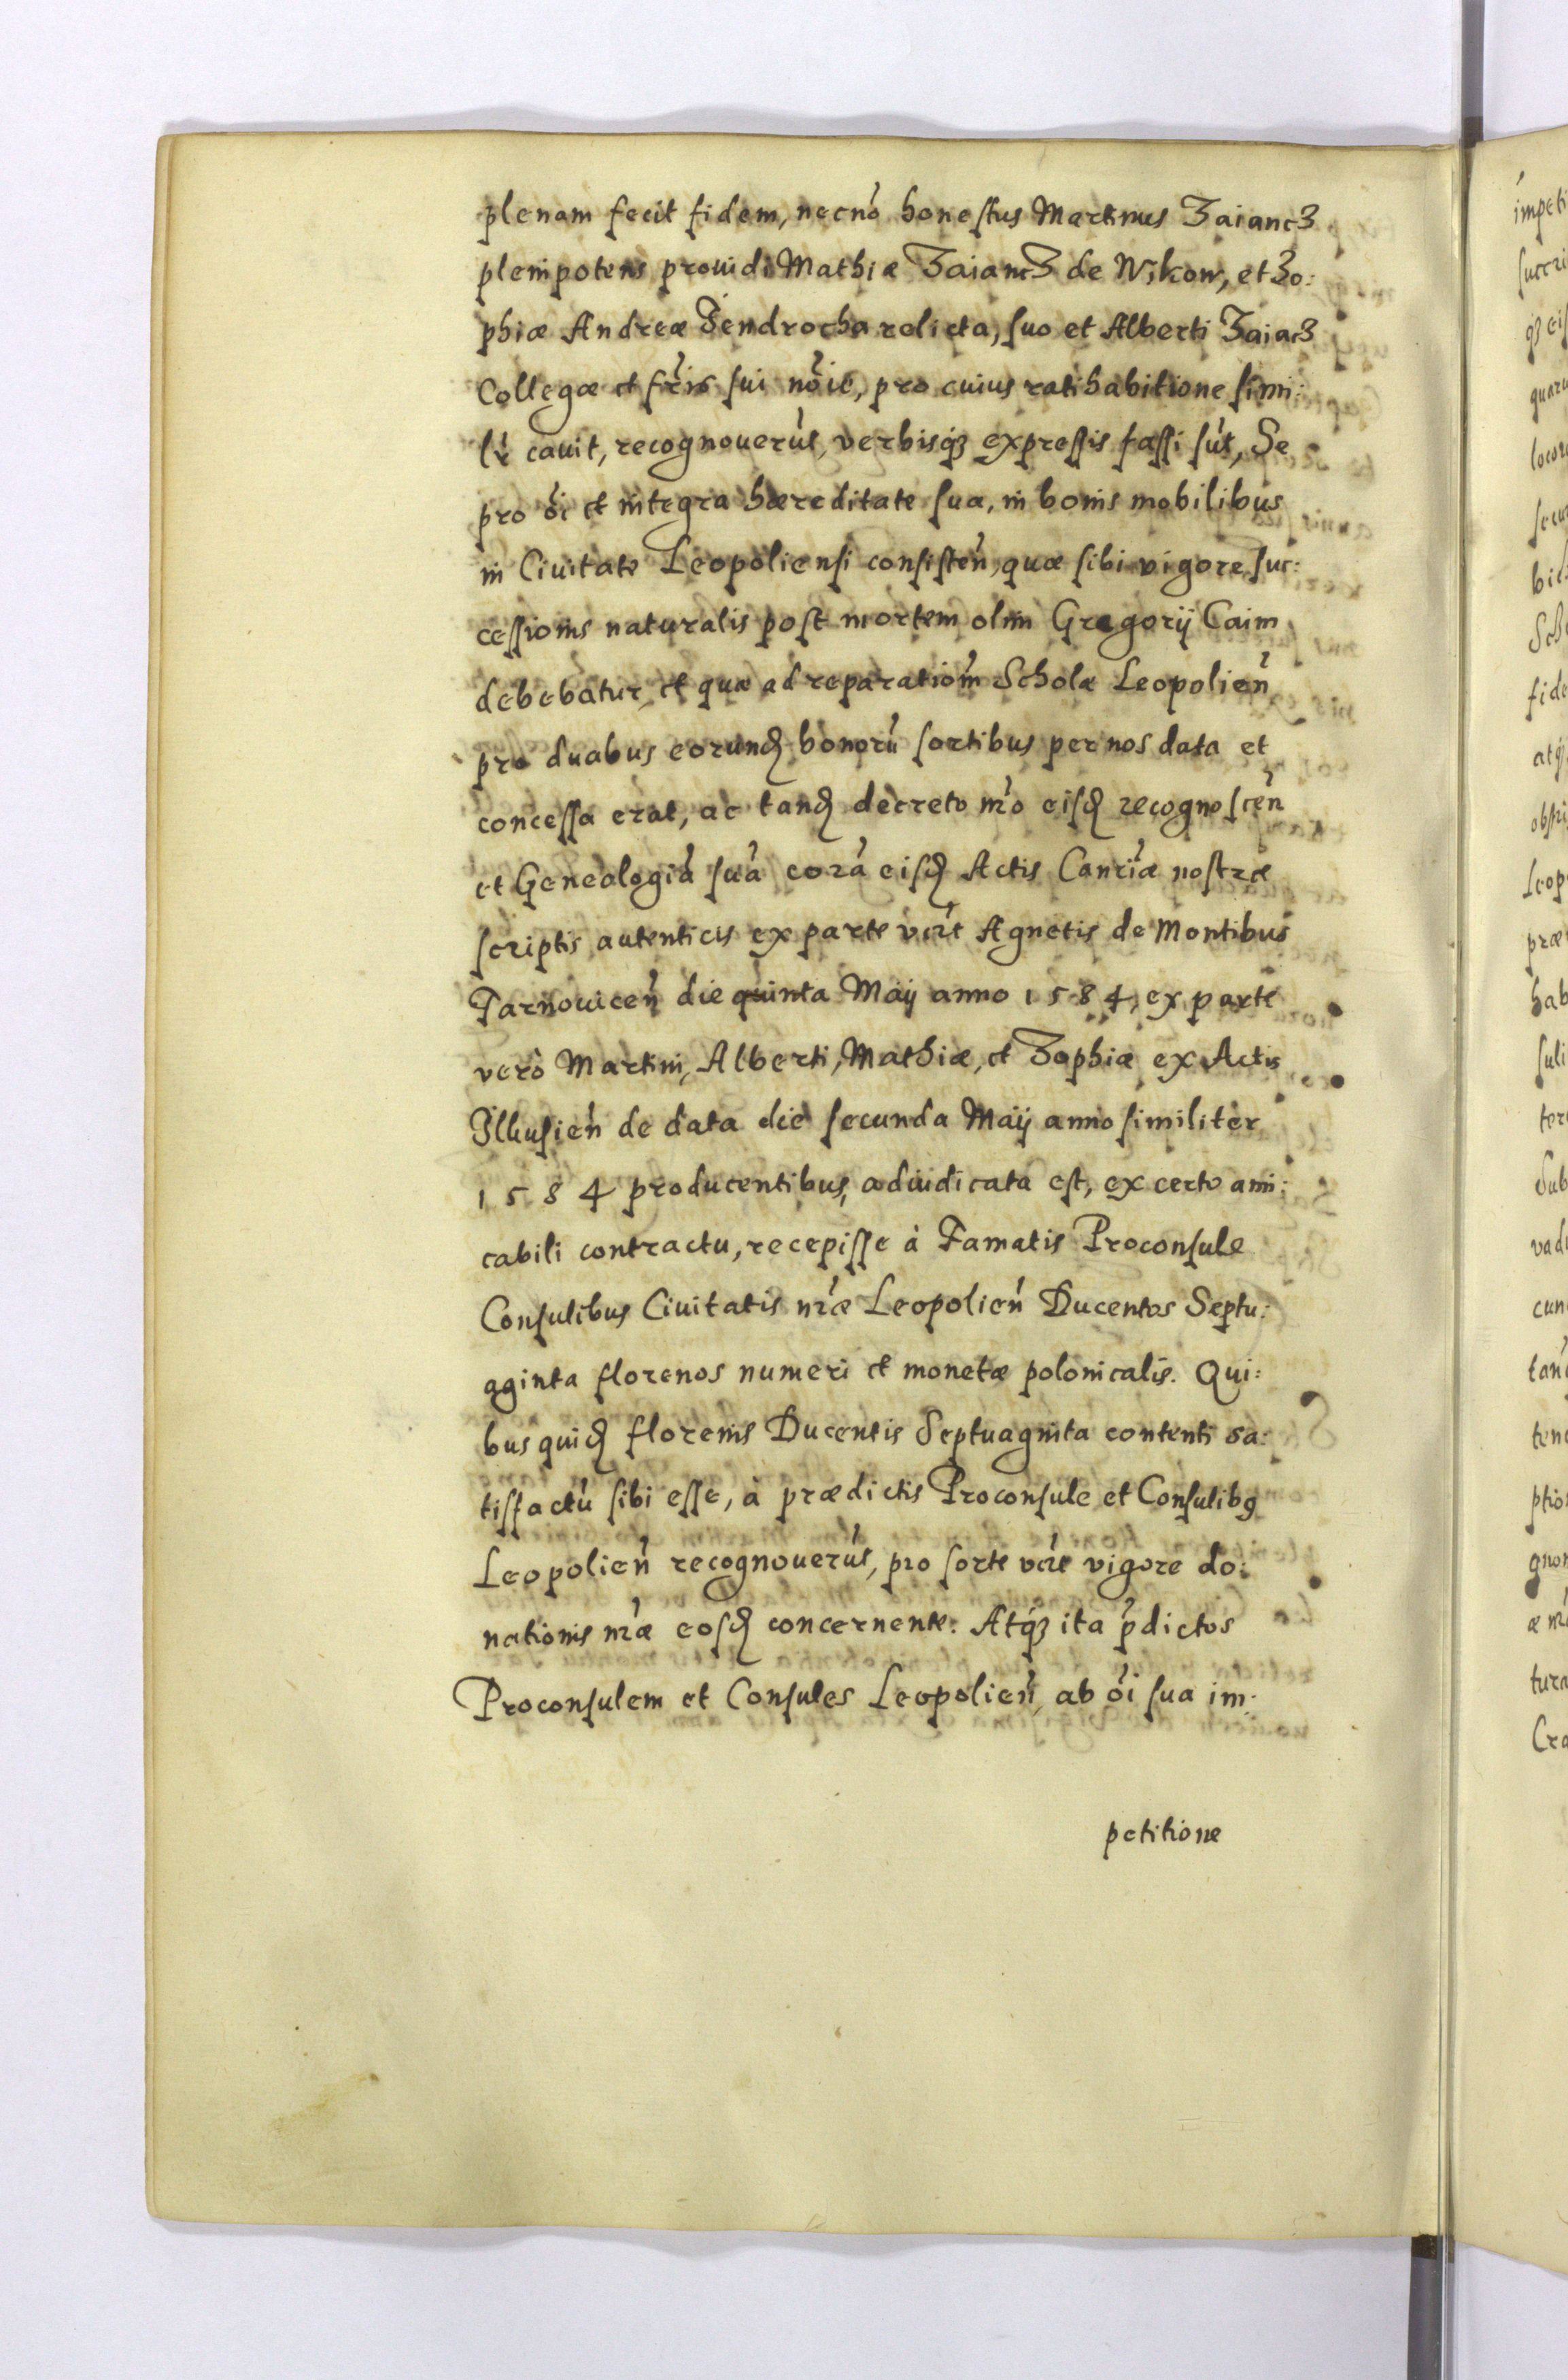 plenam fecit fidem, necnō honestus Martinus Zaiancz
plenipotens prouidi Mathiæ Zaiancz de Wikow, et Zo:
phiæ Andreæ Jendrocha relicta, suo et Alberti Zaiacz
Collegæ et fr̃is sui nōīe, pro cuius ratihabitione simi:
lr̃ cauit, recognouerūt, verbisq3 expressis fassi sūt, Se
pro ōi et integra hæreditate sua, in bonis mobilibus
in Ciuitate Leopoliensi consisteñ, quæ sibi vigore suc:
cessionis naturalis post mortem olim Gregorij Caim
debebatur, et quæ ad reparatiōm Scholæ Leopolieñ
pro duabus eorund bonorū sortibus per nos data et
concessa erat, ac tand decreto nr̃o eisd recognosceñ
et Genealogiā suā corā eisd Actis Canr̃iæ nostræ
scriptis autenticis ex parte vdt Agnetis de Montibus
Tarnouiceñ die quinta Maij anno 1584, ex parte
verò Martini, Alberti, Mathiæ, et Zophiæ ex Actis
Ilkusieñ de data die secunda Maij anno similiter
1584 producentibus, adiudicata est, ex certo ami:
cabili contractu, recepisse à Famatis Proconsule
Consulibus Ciuitatis nr̃æ Leopolieñ Ducentos Septu:
aginta florenos numeri et monetæ polonicalis. Qui:
bus quid florenis Ducentis Septuaginta contenti sa:
tisfactū sibi esse, à prædictis Proconsule et Consulibg
Leopolieñ recognouerūt, pro sorte vdt vigore do:
nationis nr̃æ eosd concernente. Atq3 ita p̃dictos
Proconsulem et Consules Leopolieñ, ab ōi sua im:
petitione